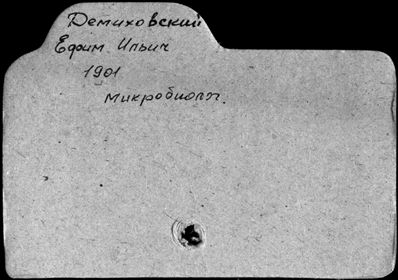 Демиховский
Ефим Ильич
1901
микробиолог.